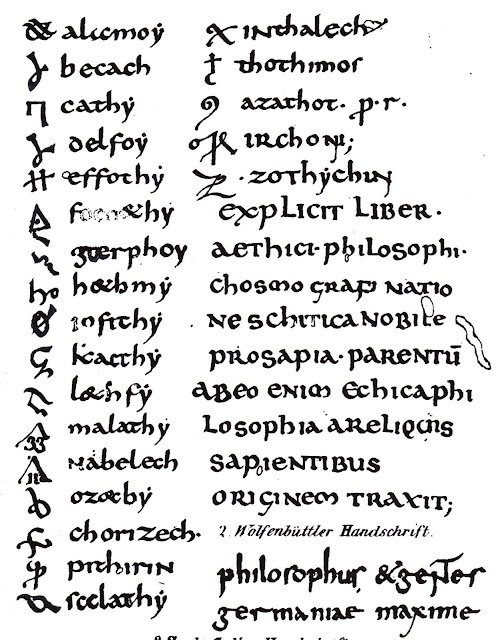 alicmoÿ
becach
cathÿ
delfoÿ
effothÿ
hœbmÿ
iofithÿ
malathÿ
nabelech
ozœbÿ
chorizech.
pithirin
xinthalech
thothimos
azathot. p. r.
irchoni;
zothÿchin
EXPLICIT LIBER.
AETHICI. PHILOSOPHI.
CHOSMO GRAFI NATIO
NE SCHITICA NOBILE
PROSAPIA. PARENTŪ
AB EO ENIM ETHICA PHI
LOSOPHIA A RELIQUIS
SAPIENTIBUS
ORIGINEM TRAXIT;
2. Wolfenbüttler Handschrift.
philosophus &
germaniae maxime